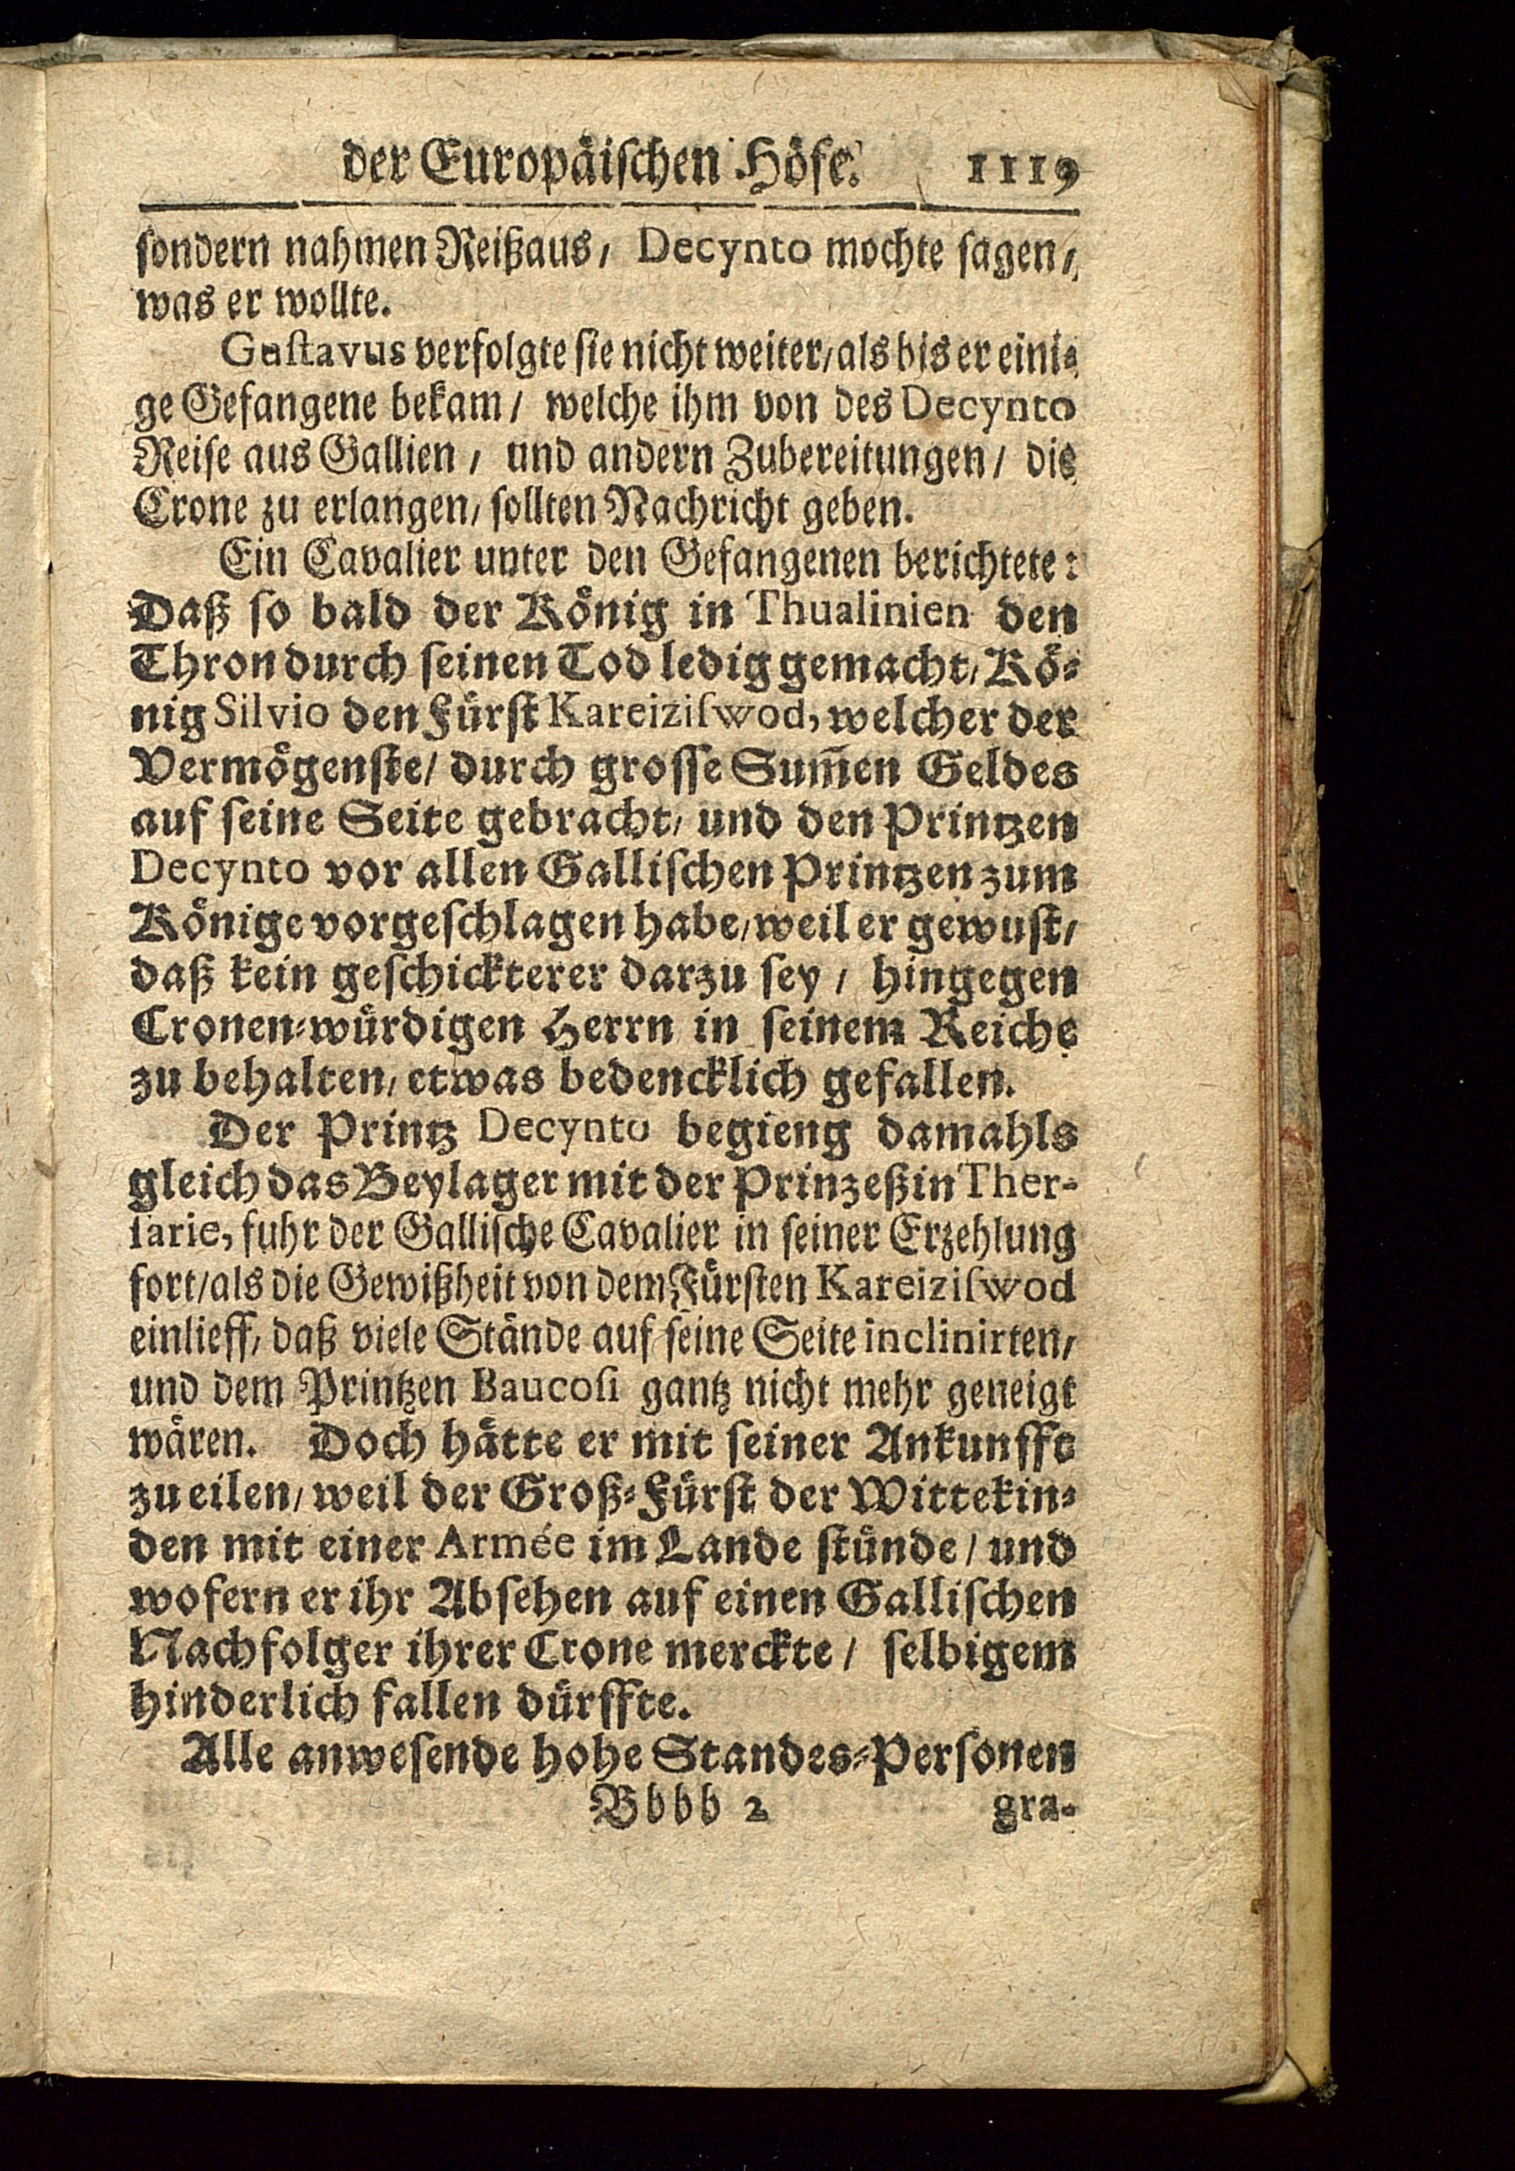 der Europäiſchen Höfe. 1119
ſondern nahmen Reißaus/ Decynto mochte ſagen/
was er wollte.
Guſtavus verfolgte ſie nicht weiter/als bis er eini⸗
ge Gefangene bekam/ welche ihm von des Decynto
Reiſe aus Gallien/ und andern Zubereitungen/ die
Crone zu erlangen/ ſollten Nachricht geben.
Ein Cavalier unter den Gefangenen berichtete:
Daß ſo bald der König in Thualinien den
Thron durch ſeinen Tod ledig gemacht/ Kö⸗
nig Silvio den Fürſt Kareiziſwod, welcher der
Vermögenſte/ durch groſſe Sum̃en Geldes
auf ſeine Seite gebracht/ und den Printzen
Decynto vor allen Galliſchen Printzen zum
Könige vorgeſchlagen habe/weil er gewuſt/
daß kein geſchickterer darzu ſey/ hingegen
Cronen⸗würdigen Herrn in ſeinem Reiche
zu behalten/ etwas bedencklich gefallen.
Der Printz Decynto begieng damahls
gleich das Beylager mit der Prinzeßin Ther-
ſarie, fuhr der Galliſche Cavalier in ſeiner Erzehlung
fort/als die Gewißheit von dem Fürſten Kareiziſwod
einlieff/ daß viele Stände auf ſeine Seite inclinirten/
und dem Printzen Baucoſi gantz nicht mehr geneigt
wären. Doch hätte er mit ſeiner Ankunfft
zu eilen/ weil der Groß⸗Fürſt der Wittekin⸗
den mit einer Armée im Lande ſtünde/ und
wofern er ihr Abſehen auf einen Galliſchen
Nachfolger ihrer Crone merckte/ ſelbigem
hinderlich fallen dürffte.
Alle anweſende hohe Standes⸗Perſonen
Bbbb 2 gra-